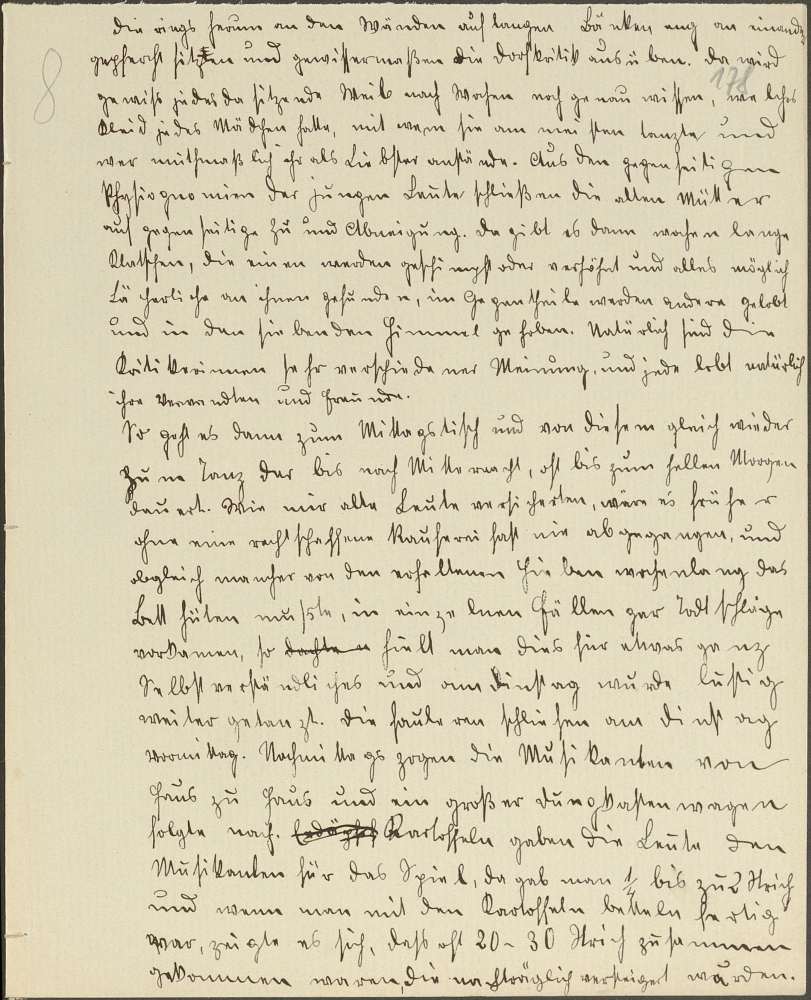 8
die rings herum an den Wänden auf langen Bänken eng an einander
gepfercht sitzen und gewissermaßen die Dorfkritik ausüben. Da wird
178
gewiss jedes da sitzende Weib nach Wochen noch genau wissen, welches
Kleid jedes Mädchen hatte, mit wem sie am meisten tanzte und
wer muthmaßlich ihr als Liebster anstände. Aus den gegenseitigen
Physiognomien der jungen Leute schließen die alten Mütter
auf gegenseitige Zu und Abneigung. Da gibt es dann wochenlange
Klatschen, die einen werden geschimpft oder verhöhnt und alles möglich
Lächerliche an ihnen gefunden, im Gegentheile werden andere gelobt
und in den siebenden Himmel gehoben. Natürlich sind die
Kritikerinnen sehr verschiedener Meinung, und jede lobt natürlich
ihre Verwandten und Freunde.
So geht es dann zum Mittagstisch und von diesem gleich wieder
zum Tanz der bis nach Mitternacht, oft bis zum hellen Morgen
dauert. Wie mir alte Leute versicherten, wäre es früher
ohne eine rechtschaffene Rauferei fast nie abgegangen, und
obgleich mancher von den erhaltenen Hieben wochenlang das
Bett hüten musste, in einzelnen Fällen gar Todtschläge
vorkamen, so dachte hielt man dies für etwas ganz
Selbstverständliches und am Dinstag wurde lustig
weiter getanzt. Die fauleren schliefen am Dinstag
vormittag. Nachmittags zogen die Musikanten von
Haus zu Haus und ein großer Dungkastenwagen
folgte nach. Erdäpfel Kartoffeln gaben die Leute den
Musikanten für das Spiel, da gab man 1/4 bis zu 2 Strich
und wenn man mit den Kartoffeln betteln fertig
war, zeigte es sich, dass oft 20-30 Strich zusammen
gekommen waren, die nachträglich versteigert wurden.